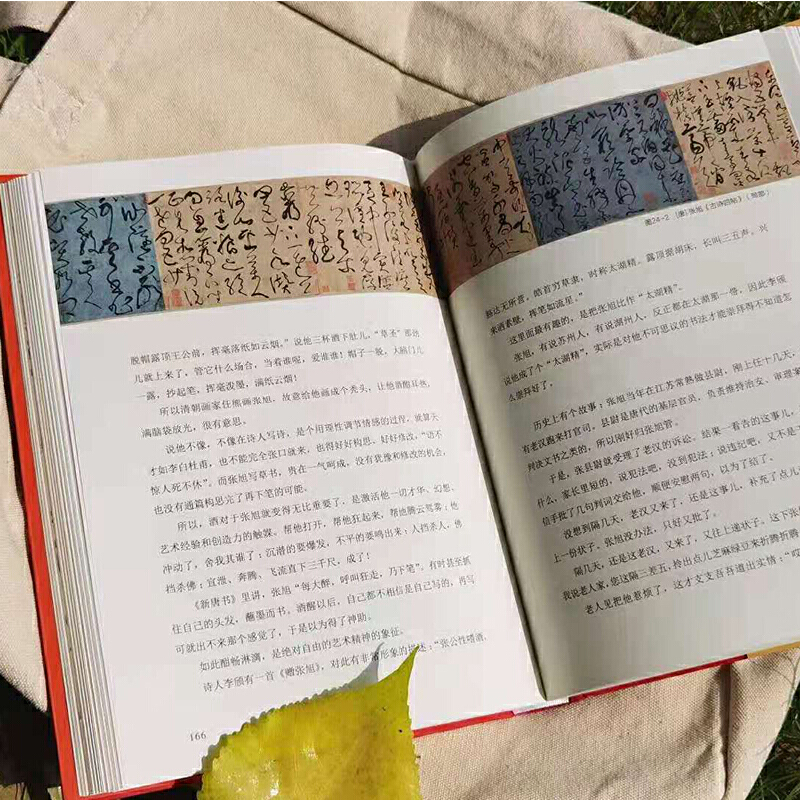 脱帽露顶王公前，挥毫落纸如云烟。”说他三杯酒下肚儿，“草圣”那劲
儿就上来了，管它什么场合，当着谁呢，爱谁谁！帽子一脱，大脑门儿
一露，抄起笔，挥毫泼墨，满纸云烟！
所以清朝画家任熊画张旭，故意给他画成个秃头，让他酒酣耳热，
满脑袋放光，很有意思。
说他不像，不像在诗人写诗，是个用理性调节情感的过程，就算天
才如李白杜甫，也不能完全张口就来，也得好好构思，好好修改，“语不
惊人死不休”。而张旭写草书，贵在一气呵成，没有犹豫和修改的机会，
也没有通篇构思完了再下笔的可能。
所以，酒对于张旭就变得无比重要了，是激活他一切才华、幻想、
艺术经验和创造力的触媒。帮他打开，帮他狂起来，帮他腾云驾雾；他
冲动了，舍我其谁了；沉潜的要爆发，不平的要鸣出来；人挡杀人，佛
挡杀佛；宣泄、奔腾、飞流直下三千尺，成了！
《新唐书》里讲，张旭“每大醉，呼叫狂走，乃下笔”。有时甚至抓
住自己的头发，蘸墨而书。酒醒以后，自己都不相信是自己写的，再写
可就出不来那个感觉了，于是以为得了神助。
如此酣畅淋漓，是绝对自由的艺术精神的象征。
诗人李颀有一首《赠张旭》，对此有非常形象的描述：“张公性嗜酒，
166
图24-2 [唐]张旭《古诗四帖》（局部）
豁达无所营。皓首穷草隶，时称太湖精。露顶据胡床，长叫三五声。兴
来洒素壁，挥笔如流星。”
这里面最有趣的，是把张旭比作“太湖精”。
张旭，有说苏州人，有说湖州人，反正都在太湖那一带，因此李颀
说他成了个“太湖精”，实际是对他不可思议的书法才能崇拜得不知道怎
么崇拜好了。
历史上有个故事：张旭当年在江苏常熟做县尉，刚上任十几天，
有老汉跑来打官司，县尉是唐代的基层官员，负责维持治安、审理案
判决文书之类的，所以刚好归张旭管。
于是，张县尉就受理了老汉的诉讼。结果一看告的这事儿，
什么，家长里短的，说犯法吧，没到犯法；说违纪吧，又不是
信手批了几句判词交给他，顺便安慰两句，以为了结了。
没想到隔几天，老汉又来了，还是这事儿，补充了点儿
上一份状子。张旭没办法，只好又批了。
隔几天，还是这老汉，又来了，又往上递状子。这下张
我说老人家，您这隔三差五，拎出点儿芝麻绿豆来折腾折腾
老人见把他惹烦了，这才支支吾吾道出实情：“哎